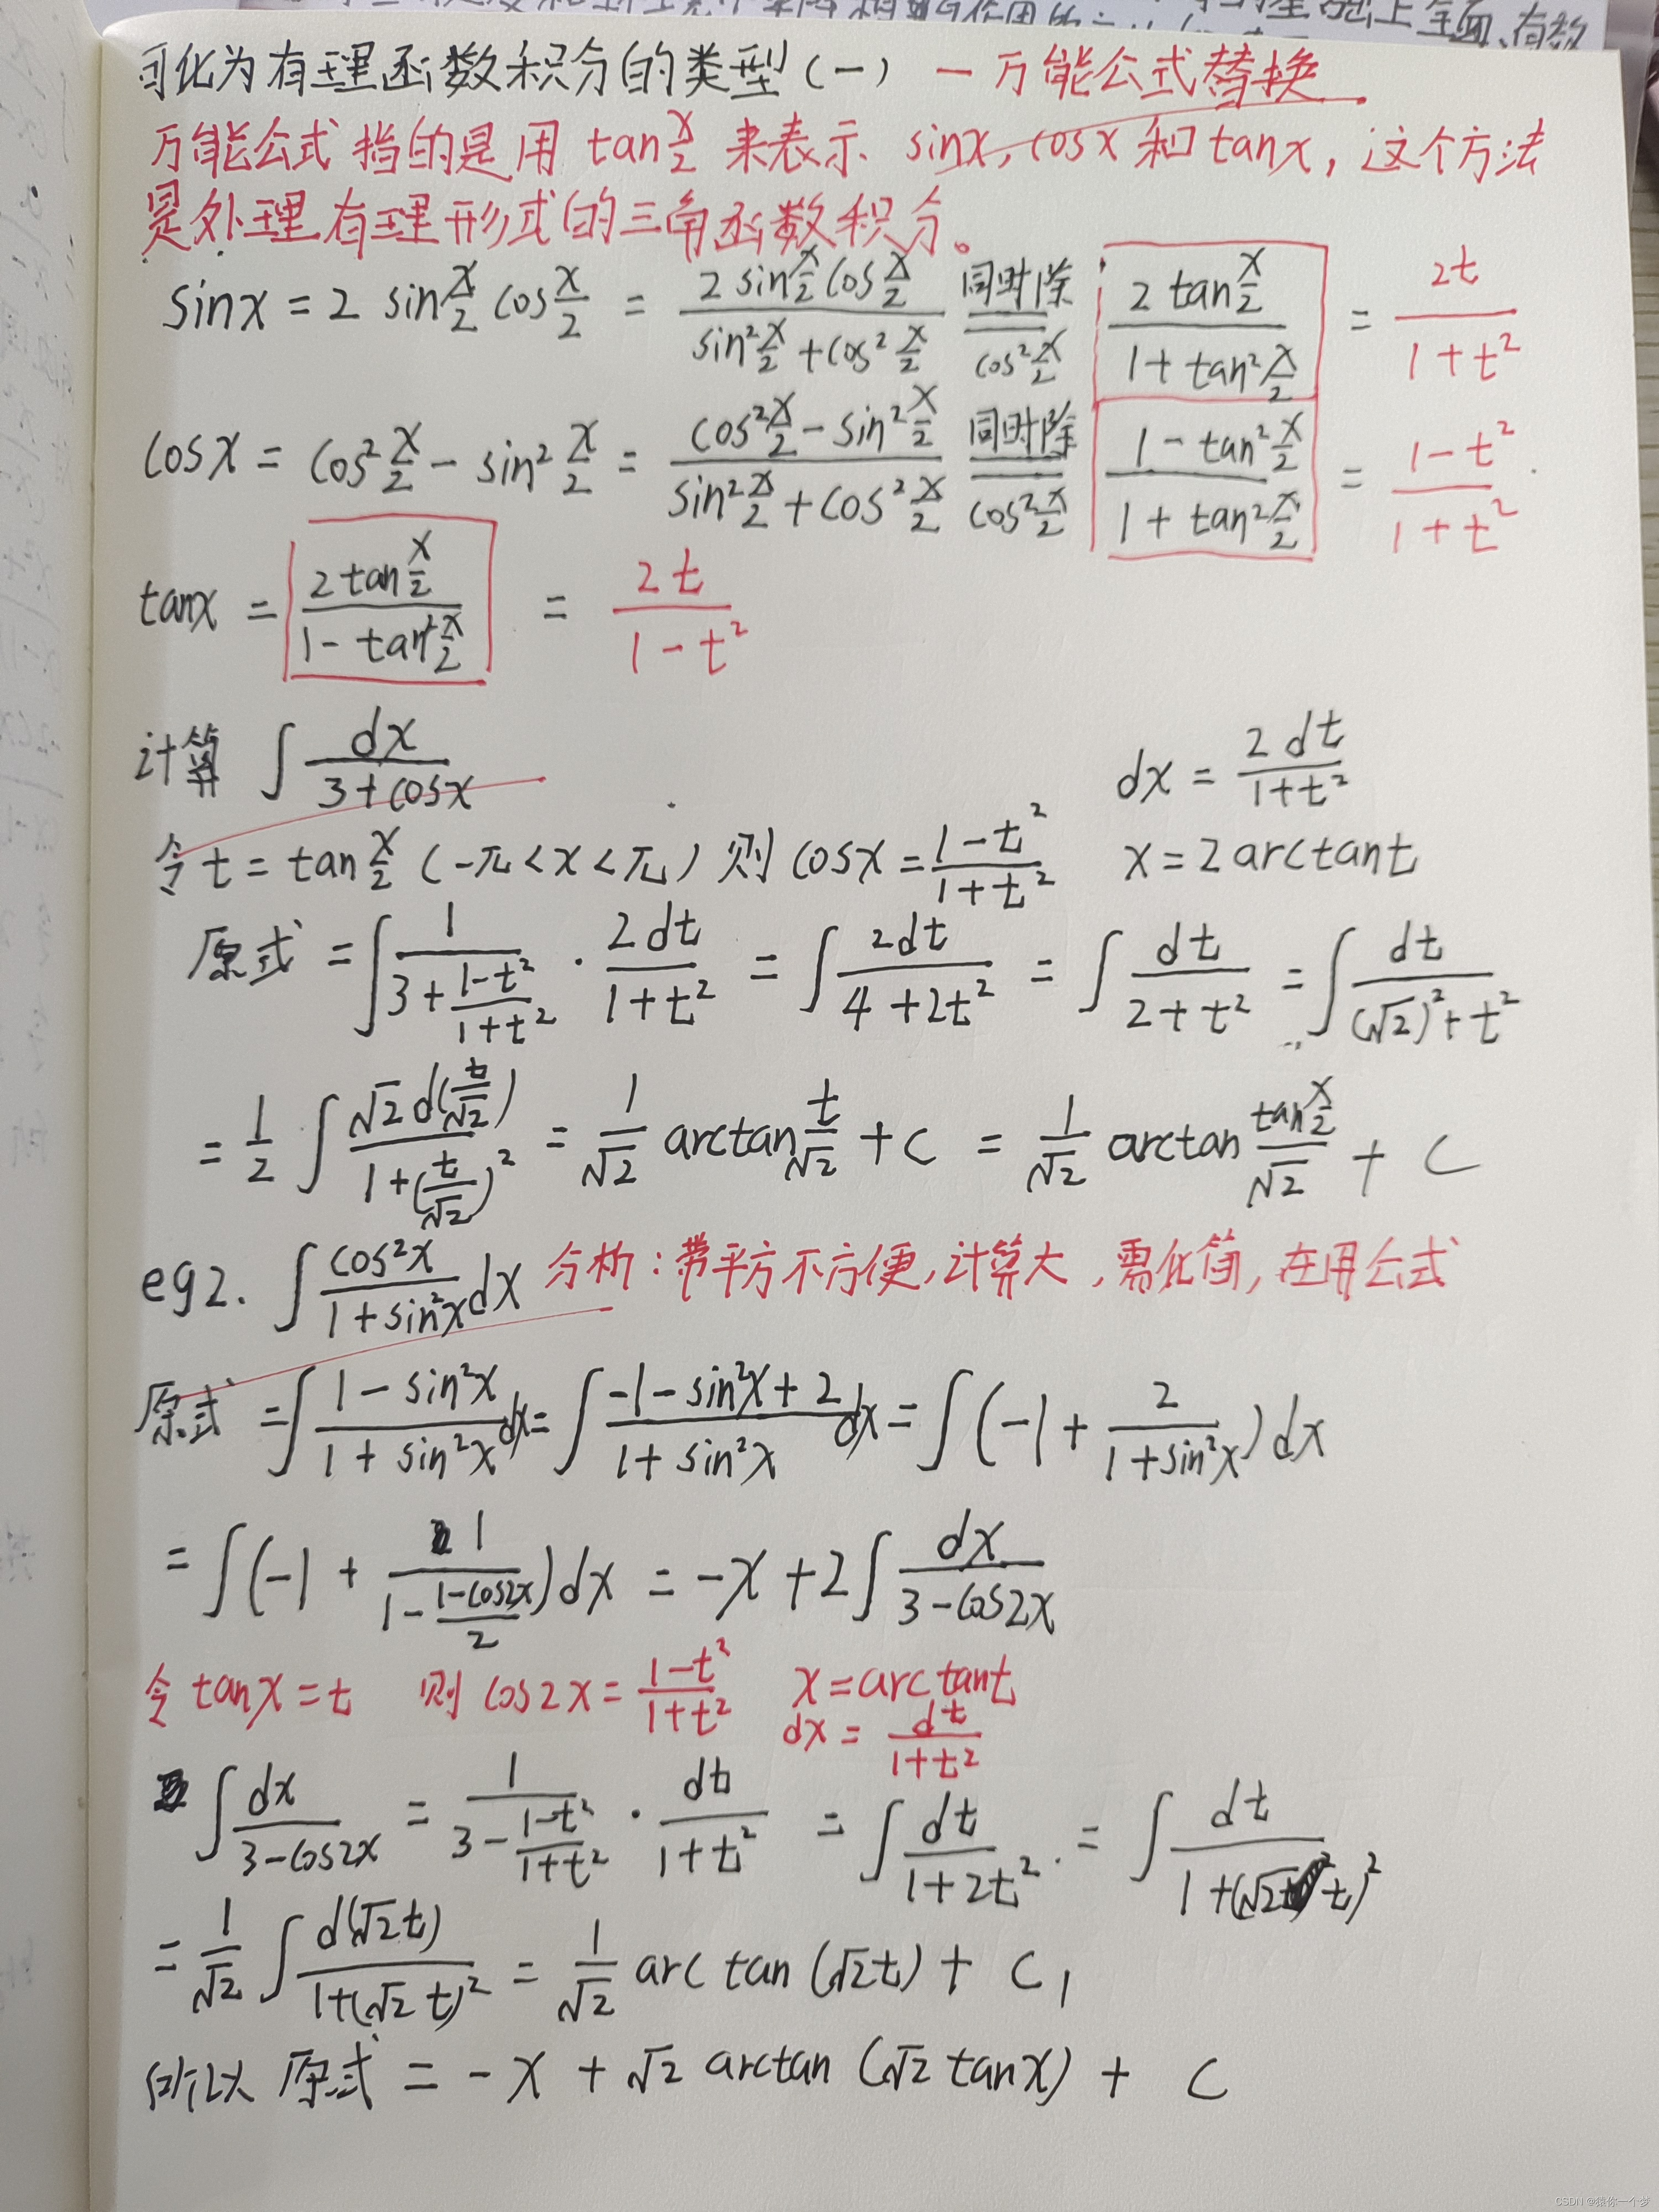 可化为有理函数积分的类型(一) 一万能公式替换
万能公式 指的是用 tan x/2 来表示 sinx, cosx 和 tanx, 这个方法
是处理有理形式的三角函数积分。
sinx = 2 sin x/2 cos x/2 = (2 sin x/2 cos x/2)/(sin² x/2 + cos² x/2) 同时除 cos² x/2 (2 tan x/2)/(1 + tan² x/2) = 2t/(1+t²)
cosx = cos² x/2 - sin² x/2 = (cos² x/2 - sin² x/2)/(sin² x/2 + cos² x/2) 同时除 cos² x/2 (1 - tan² x/2)/(1 + tan² x/2) = (1-t²)/(1+t²)
tanx = (2tan x/2)/(1 - tan² x/2) = 2t/(1-t²)
计算 ∫ dx/(3+cosx) dx = 2dt/(1+t²)
令 t = tan x/2 (-π<x<π) 则 cosx = (1-t²)/(1+t²) x = 2arctant
原式 = ∫ 1/(3+(1-t²)/(1+t²)) · 2dt/(1+t²) = ∫ 2dt/(4+2t²) = ∫ dt/(2+t²) = ∫ dt/((√2)²+t²)
= 1/2 ∫ √2 d(t/√2)/(1+(t/√2)²) = 1/√2 arctan t/√2 + C = 1/√2 arctan (tan x/2)/√2 + C
eg2. ∫ cos²x/(1+sin²x) dx 分析:带平方不方便,计算大,需化简,在用公式
原式 = ∫ (1-sin²x)/(1+sin²x) dx = ∫ (-1-sin²x+2)/(1+sin²x) dx = ∫ (-1 + 2/(1+sin²x)) dx
= ∫ (-1 + 1/(1-(1-cos2x)/2)) dx = -x + 2∫ dx/(3-cos2x)
令 tanx = t 则 cos2x = (1-t²)/(1+t²) x = arctant
dx = dt/(1+t²)
∫ dx/(3-cos2x) = 1/(3-(1-t²)/(1+t²)) · dt/(1+t²) = ∫ dt/(1+2t²) = ∫ dt/(1+(√2t)²)
= 1/√2 ∫ d(√2t)/(1+(√2t)²) = 1/√2 arctan(√2t) + C₁
所以 原式 = -x + √2 arctan(√2tanx) + C
CSDN @猿你一个梦